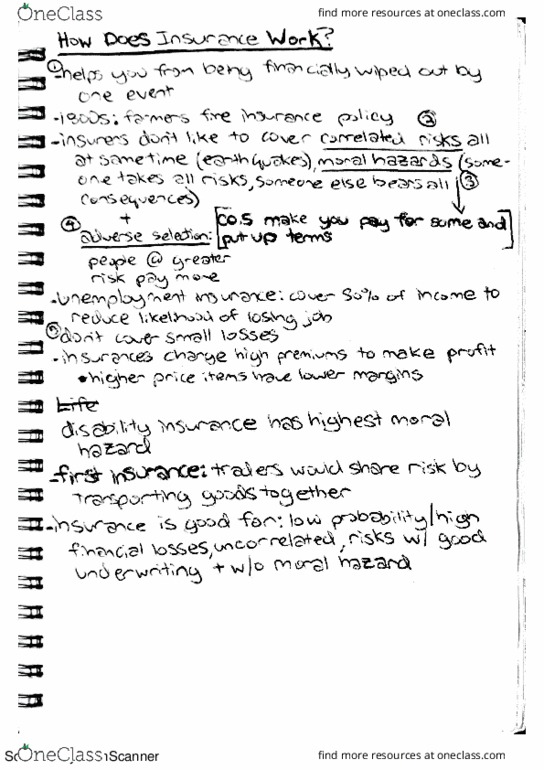 OneClass
find more resources at oneclass.com
How Does Insurance Work?
① -helps you from being financially wiped out by
one event
-1800s: farmers fire insurance policy ②
-insurers don't like to cover correlated risks all
at same time (earthquakes), moral hazards (some-
one takes all risks, someone else bears all ③
consequences)
+
④ adverse selection: [co.s make you pay for some and
put up terms]
people @ greater
risk pay more
-unemployment insurance: cover 50% of income to
reduce likelihood of losing job
⑤ don't cover small losses
-insurances charge high premiums to make profit
•higher price items have lower margins
Life
disability insurance has highest moral
hazard
-first insurance: traders would share risk by
transporting goods together
-insurance is good for: low probability/high
financial losses, uncorrelated, risks w/ good
underwriting + w/o moral hazard
OneClass
Scanner
find more resources at oneclass.com